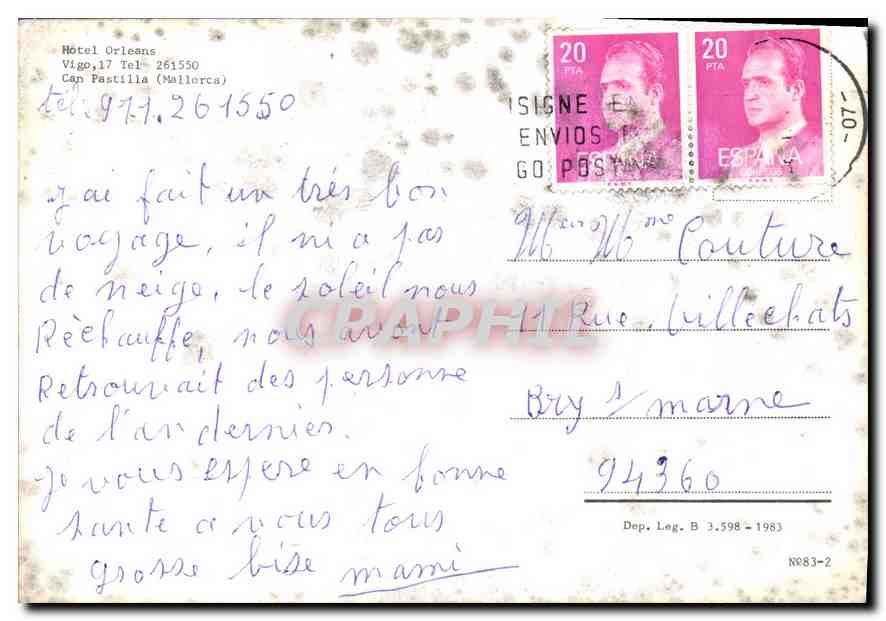 Hotel Orleans
Vigo,17 Tel 261550
Can Pastilla (Mallorca)
tél: 911.261550
20 PTA
20 PTA
ESPAÑA
ESPAÑA
CORREOS
SIGNE E
ENVIOS
GO POST
-07-
j'ai fait un très bon
voyage, il ni a pas
de neige, le soleil nous
Rèchauffe, nous avont
Retrouvait des personne
de l'an dernier.
Je vous espere en bonne
sante a vous tous
grosse bise mami
Mme Couture
11 Rue Villechats
Bry s/ marne
94360
Dep. Leg. B 3.598 - 1983
Nº83-2
CPAPHIL